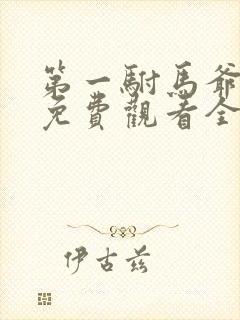 第一駙馬爺
免費觀看全
伊古茲